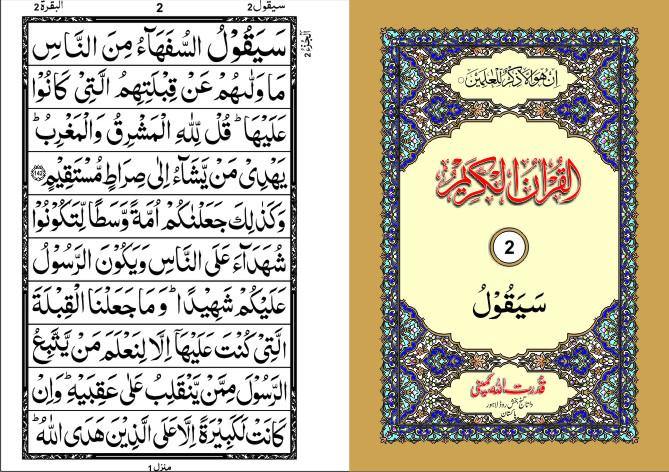 البقرة 2
2
سيقول 2
الجزء 2
سَيَقُوۡلُ السُّفَهَآءُ مِنَ النَّاسِ
مَا وَلّٰٮهُمۡ عَنۡ قِبۡلَتِهِمُ الَّتِىۡ كَانُوۡا
عَلَيۡهَا ؕ قُلۡ لِّلّٰهِ الۡمَشۡرِقُ وَالۡمَغۡرِبُ ؕ
يَهۡدِىۡ مَنۡ يَّشَآءُ اِلٰى صِرَاطٍ مُّسۡتَقِيۡمٍ ﴿142﴾
وَكَذٰلِكَ جَعَلۡنٰكُمۡ اُمَّةً وَّسَطًا لِّتَکُوۡنُوۡا
شُهَدَآءَ عَلَى النَّاسِ وَيَكُوۡنَ الرَّسُوۡلُ
عَلَيۡكُمۡ شَهِيۡدًا ؕ وَمَا جَعَلۡنَا الۡقِبۡلَةَ
الَّتِىۡ كُنۡتَ عَلَيۡهَآ اِلَّا لِنَعۡلَمَ مَنۡ يَّتَّبِعُ
الرَّسُوۡلَ مِمَّنۡ يَّنۡقَلِبُ عَلٰى عَقِبَيۡهِ ؕ وَاِنۡ
كَانَتۡ لَكَبِيۡرَةً اِلَّا عَلَى الَّذِيۡنَ هَدَى اللّٰهُ ؕ
منزل 1
اِنۡ هُوَ اِلَّا ذِكۡرٌ لِّلۡعٰلَمِيۡنَ
القرآن الكريم
2
سَيَقُوۡلُ
قدرت اللہ کمپنی
پاکستان